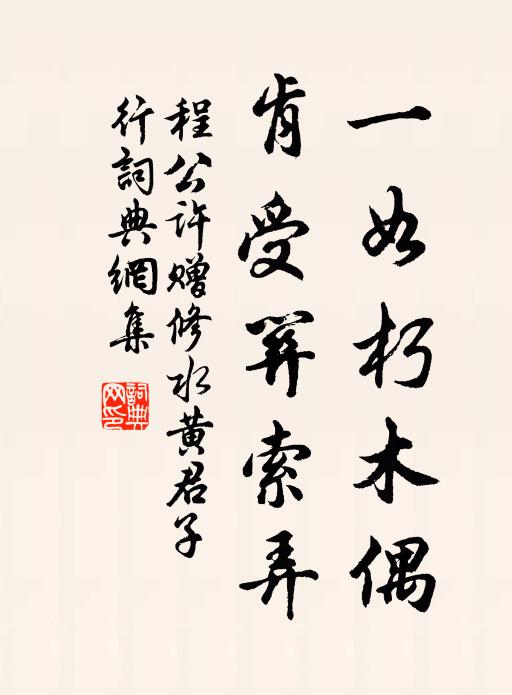 一如朽木偶
肯受索弄
程公许赠修水黄君子
行詞典網集
詞典网印